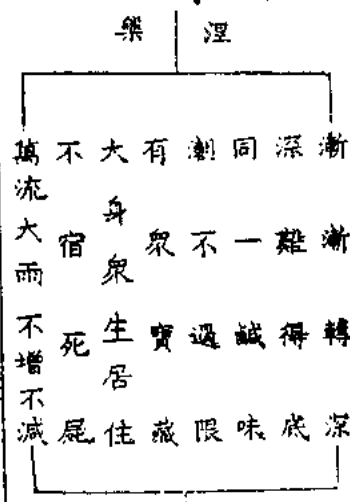 涅槃
漸漸轉深
深難得底
同一鹹味
潮不過限
有衆寶藏
大身衆生居住
不宿死屍
萬流大雨不增不減